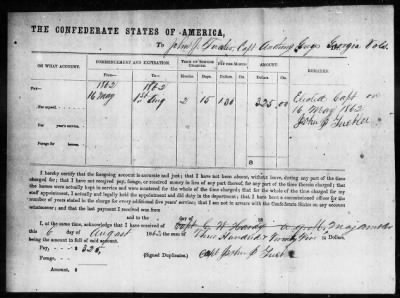 THE CONFEDERATE STATES OF AMERICA,
To John J. Tucker, Capt Georgia Vols.
ON WHAT ACCOUNT. COMMENCEMENT AND EXPIRATION. TERM OF SERVICE CHARGED. PAY PER MONTH. AMOUNT. REMARKS.
From— To— Months. Days. Dollars. Cts. Dollars. Cts.
Pay— 1862 1862
16 May 1st Aug 2 15 130 325.00 Elected Capt on
16 May 1862
For myself,
For years' service,
Forage for horses,
$
I hereby certify that the foregoing account is accurate and just; that I have not been absent, without leave, during any part of the time
charged for; that I have not received pay, forage, or received money in lieu of any part thereof, for any part of the time therein charged; that
the horses were actually kept in service and were mustered for the whole of the time charged; that for the whole of the time charged for my
staff appointment, I actually and legally held the appointment and did duty in the department; that I have been a commissioned officer for the
number of years stated in the charge for every additional five years' service; that I am not in arrears with the Confederate States on any account
whatsoever; and that the last payment I received was from
and to the day of 18
I, at the same time, acknowledge that I have received of Capt
this 6 day of August 1862 the sum of Three Hundred & Twenty Five Dollars,
being the amount in full of said account.
Pay, - - - - $ 325,
Forage, - - -
(Signed Duplicates.) Capt John J
Amount, $